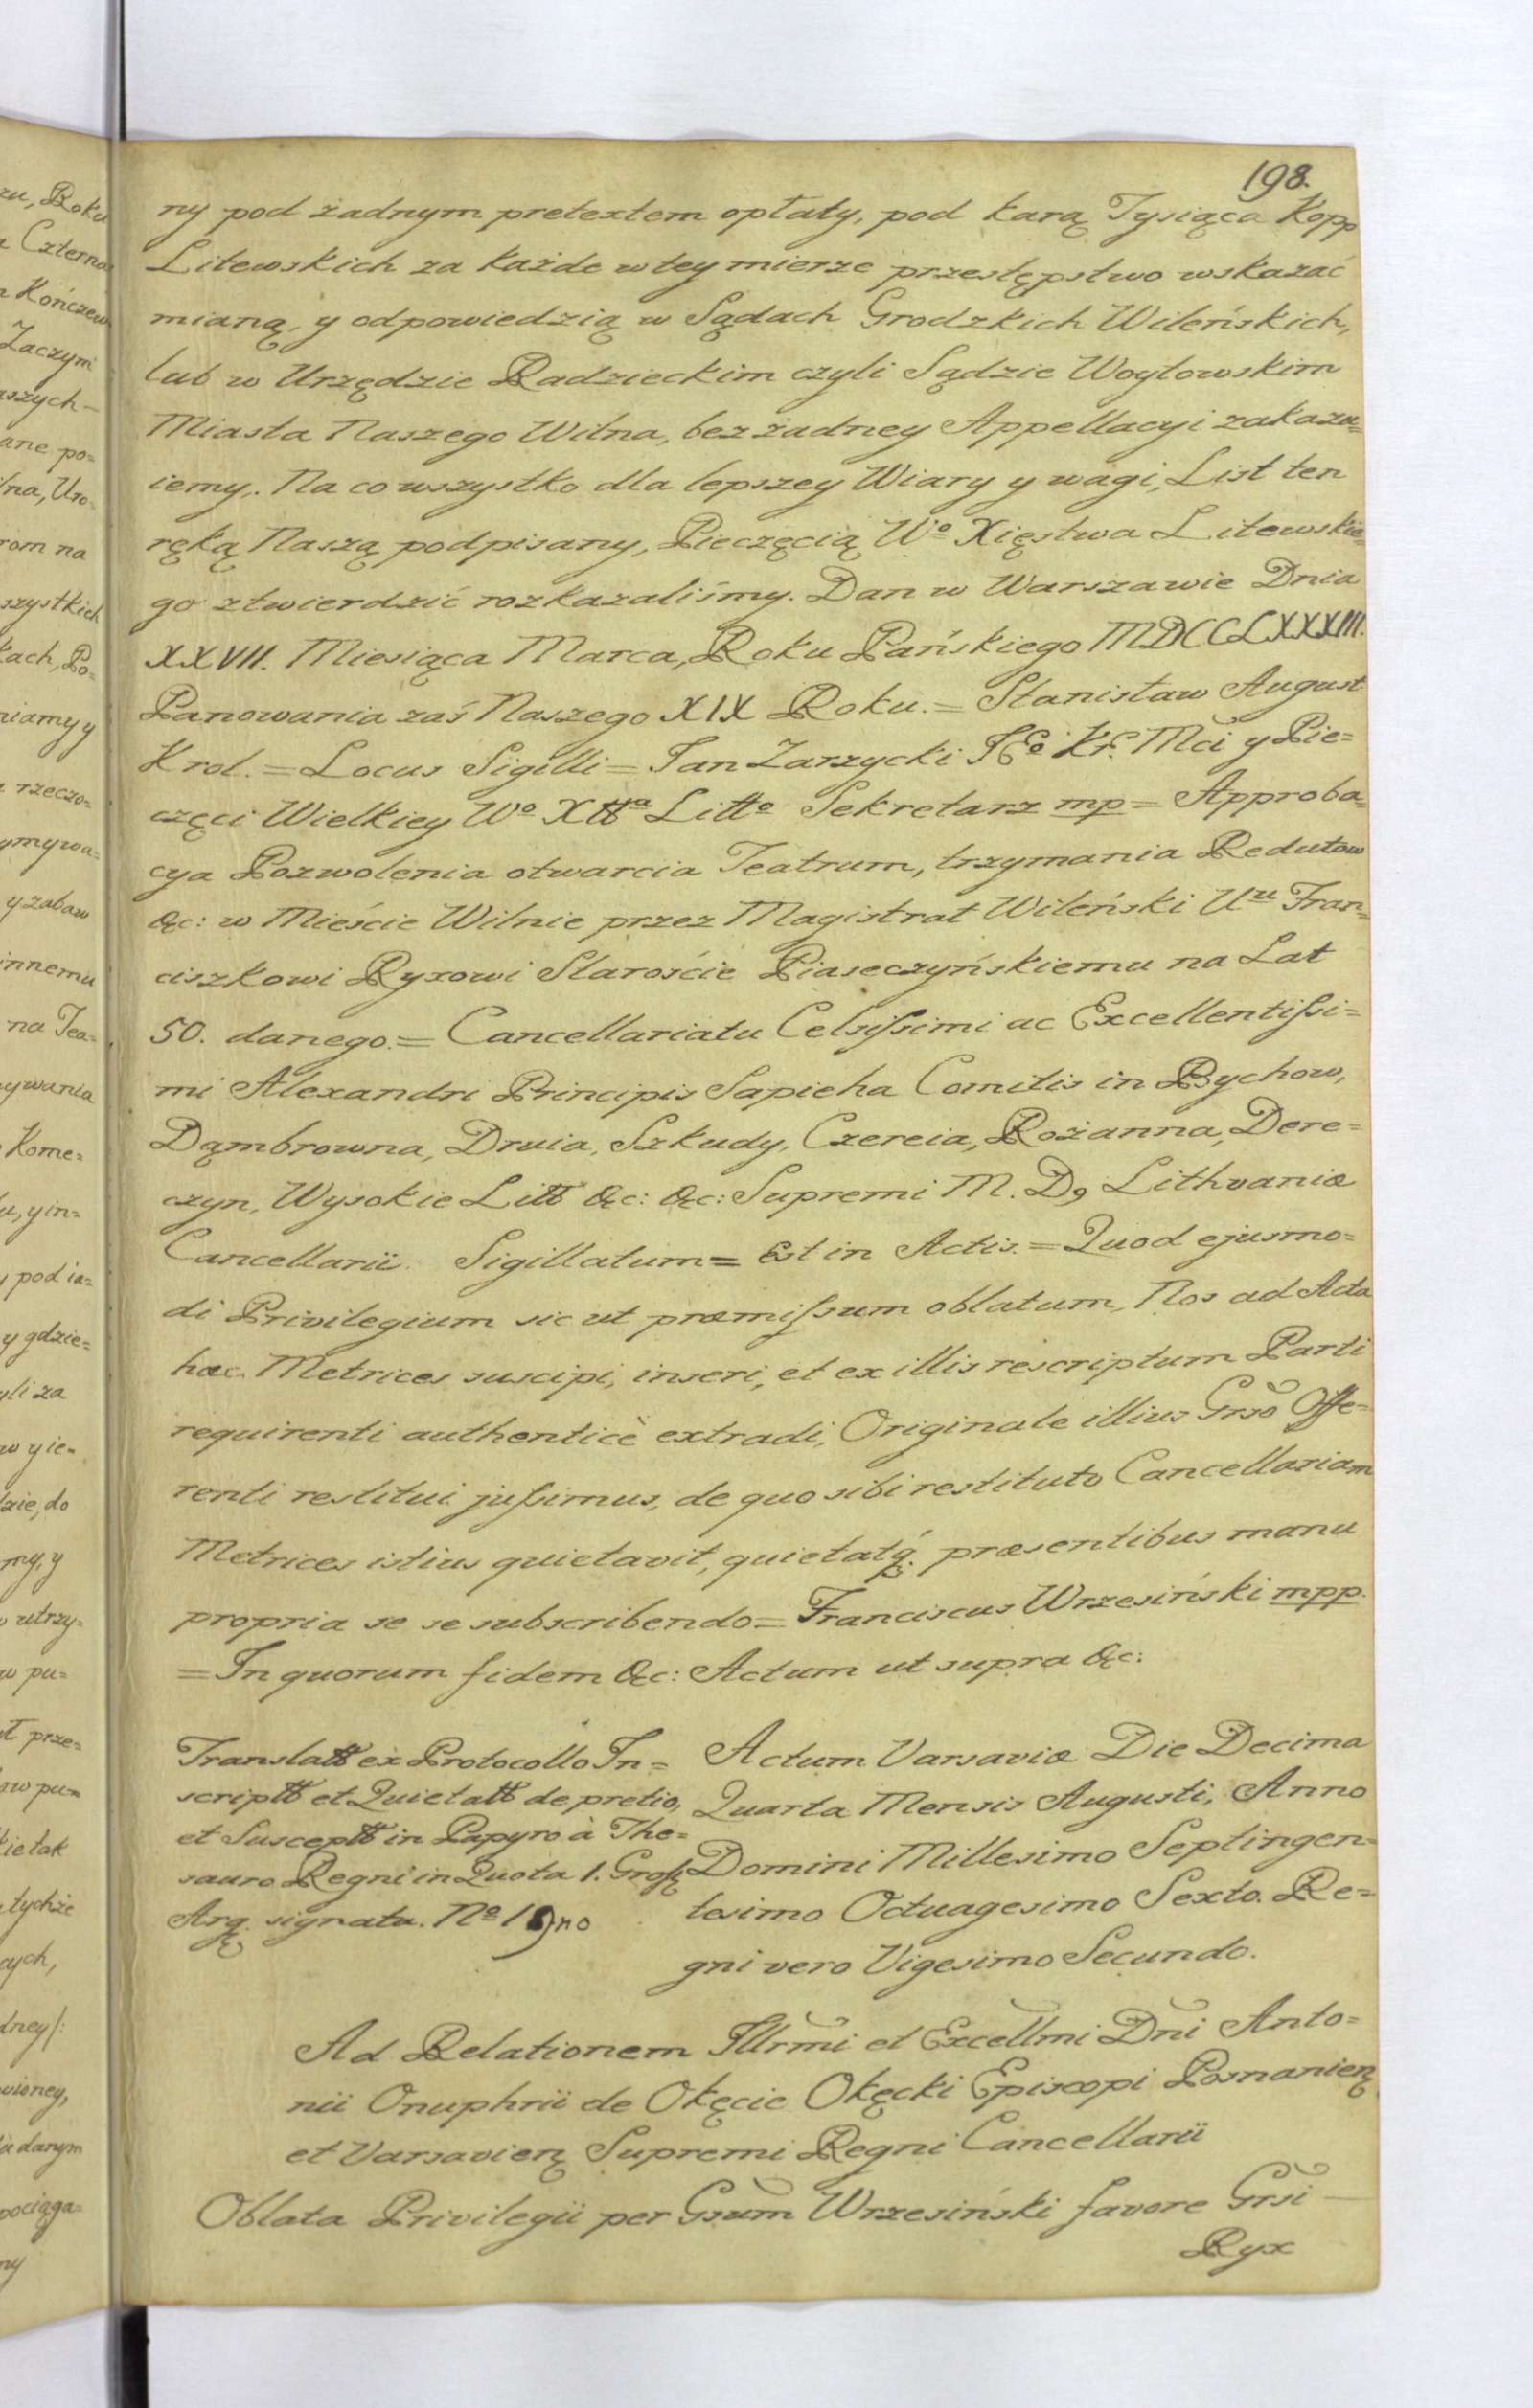 198.
ny pod żadnym pretextem opłaty, pod karą Tysiąca Kopp
Litewskich za każde w tey mierze przestępstwo wskazać
mianą, y odpowiedzią w Sądach Grodzkich Wileńskich,
lub w Urzędzie Radzieckim czyli Sądzie Woytowskim
Miasta Naszego Wilna, bez żadney Appellacyi zakazu=
iemy. Na co wszystko dla lepszey Wiary y wagi, List ten
ręką Naszą podpisany, Pieczęcią Wº Xięstwa Litewskie=
go ztwierdzić rozkazaliśmy. Dan w Warszawie Dnia
XXVII. Miesiąca Marca, Roku Pańskiego MDCCLXXXIII.
Panowania zaś Naszego XIX Roku. = Stanisław August
Krol. = Locus Sigilli = Jan Zarzycki Mci y Pie=
częci Wielkiey Wº Littº Sekretarz mp = Approba=
cya Pozwolenia otwarcia Teatrum, trzymania Redutow
&c: w Mieście Wilnie przez Magistrat Wileński Uᵘ Fran=
ciszkowi Ryxowi Staroście Piaseczyńskiemu na Lat
50. danego. = Cancellariatu Celsissimi ac Excellentissi=
mi Alexandri Principis Sapieha Comitis in Bychow,
Dąmbrowna, Druia, Szkudy, Czereia, Rożanna, Dere=
czyn, Wysokie Litt &c: &c: Supremi M. D, Lithvaniæ
Cancellarii. Sigillatum = Est in Actis. = Quod ejusmo=
di Privilegium sic ut præmissum oblatum, Nos ad Acta
hæc Metrices suscipi, inseri, et ex illis rescriptum Parti
requirenti authenticè extradi, Originale illius Grsō Offe=
renti restitui jussimus, de quo sibi restituto Cancellariam
Metrices istius quietavit, quietatq́. præsentibus manu
propria se se subscribendo = Franciscus Wrzesiński mpp.
= In quorum fidem &c: Actum ut supra &c:
Translatt ex Protocollo In=
scriptt et Quietatt de pretio,
et Susceptt in Papyro à The=
sauro Regni in Quota 1. Gross
Arg. signata. Nº 1
Actum Varsaviæ Die Decima
Quarta Mensis Augusti, Anno
Domini Millesimo Septingen=
tesimo Octuagesimo Sexto. Re=
gni vero Vigesimo Secundo.
Ad Relationem Illrmi et Excellmi Dni Anto=
nii Onuphrii de Okęcie Okęcki Episcopi Posnanien
et Varsavien Supremi Regni Cancellarii
Oblata Privilegii per Gsum Wrzesiński favore Grsi
Ryx